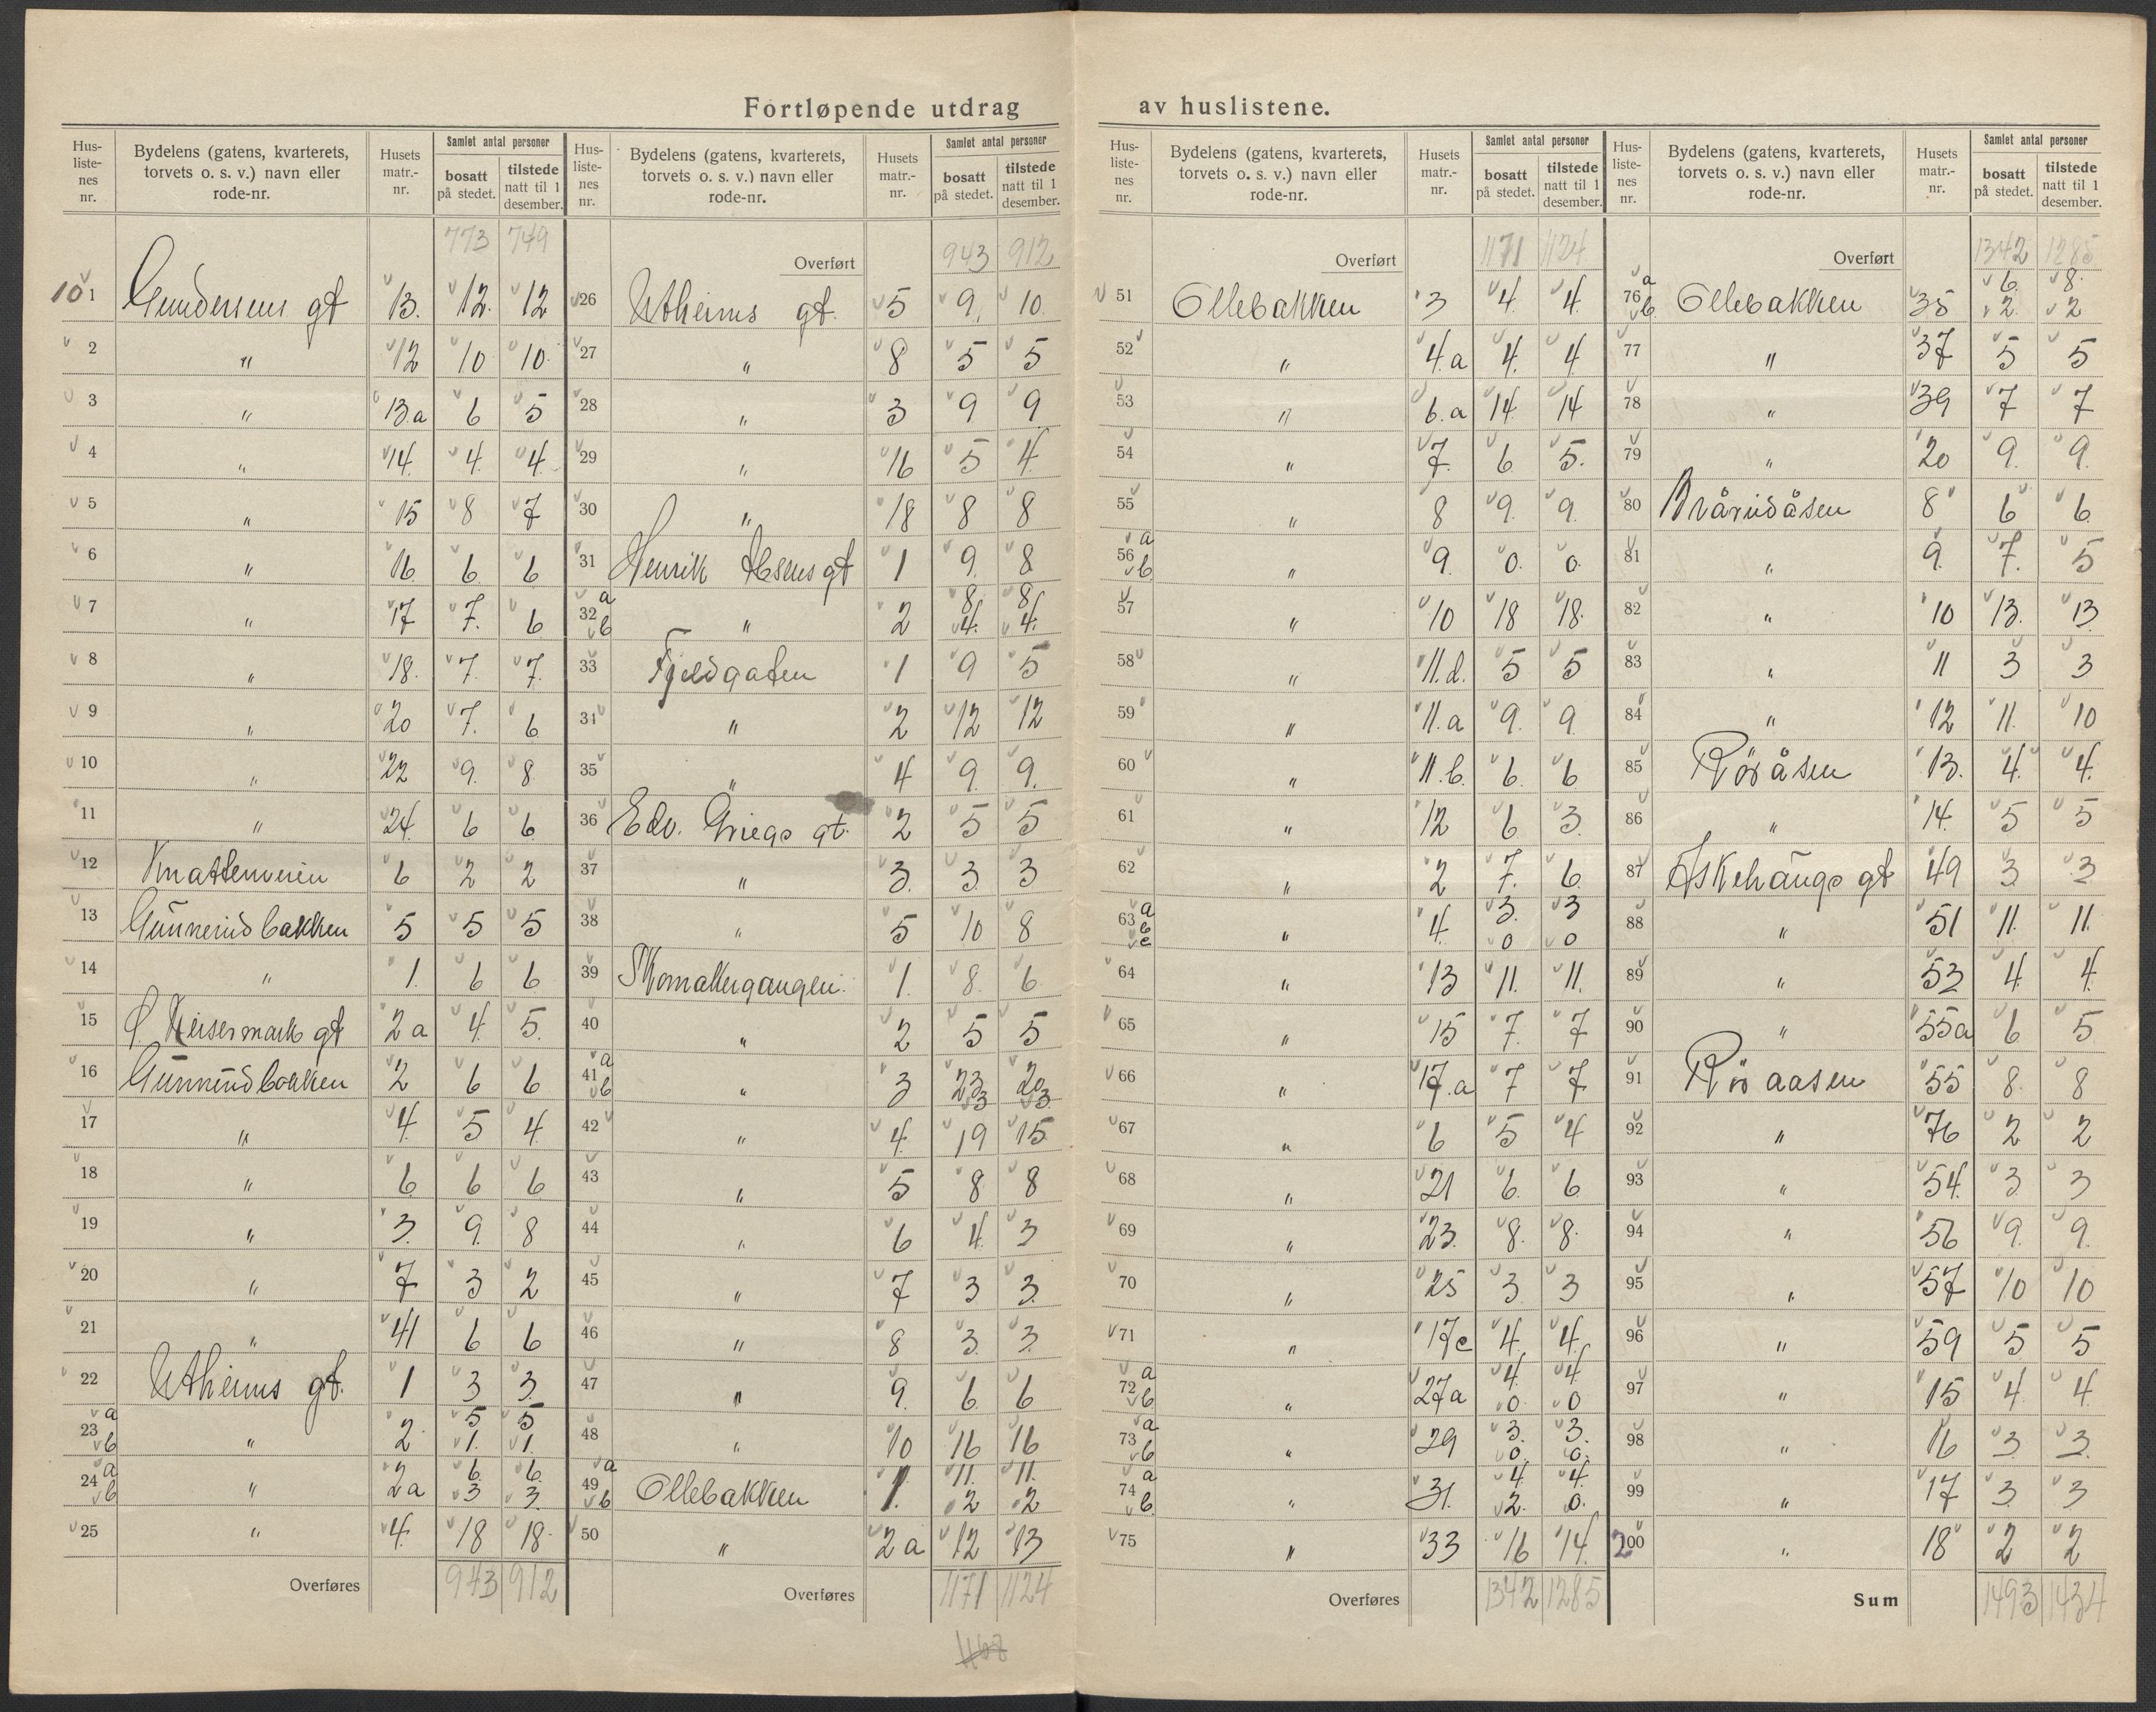 Fortløpende utdrag av huslistene.
Hus-listenes nr. | Bydelens (gatens, kvarterets, torvets o. s. v.) navn eller rode-nr. | Husets matr.-nr. | Samlet antal personer bosatt på stedet. | tilstede natt til 1 desember.
773 749
101 Gundersens gt 13. 12. 12
2 " 12 10 10
3 " 13.a 6 5
4 " 14. 4. 4.
5 " 15 8 7
6 " 16 6. 6
7 " 17 7. 6
8 " 18. 7. 7.
9 " 20 7. 6
10 " 22 9. 8
11 " 24. 6 6
12 Knattenveien 6 2 2
13 Gunnerudbakken 5 5 5
14 " 1. 6 6
15 2a 4. 5.
16 Gunnerudbakken 2 6 6
17 " 4. 5 4.
18 " 6 6 6
19 " 3. 9. 8
20 " 7 3 2
21 " 41 6 6
22 Utheims gt. 1 3 3.
23 a b " 2 5 5
1. 1.
24 a b " 2a 6. 6.
3 3.
25 " 4. 18 18
Overføres 943 912
Hus-listenes nr. | Bydelens (gatens, kvarterets, torvets o. s. v.) navn eller rode-nr. | Husets matr.-nr. | Samlet antal personer bosatt på stedet. | tilstede natt til 1 desember.
Overført 943 912
26 Utheims gt. 5 9. 10.
27 " 8 5 5
28 " 3 9. 9
29 " 16 5 4.
30 " 18 8 8
31 Henrik Ibsens gt 1 9. 8
32 a b " 2 8. 8.
4. 4.
33 Fjeldgaten 1 9 5
34 " 2 12 12
35 " 4 9. 9.
36 Edv. Griegs gt. 2 5 5
37 " 3. 3. 3
38 " 5 10 8
39 Skomakergangen. 1. 8. 6
40 " 2 5 5
41 a b " 3 23 20
3 3.
42 " 4. 19 15
43 " 5 8 8
44 " 6 4. 3
45 " 7 3 3.
46 " 8 3. 3.
47 " 9. 6. 6
48 " 10 16 16
49 a b Ollebakken 1. 11. 11.
2 2
50 " 2a 12 13
Overføres 1171 1124
1168
Hus-listenes nr. | Bydelens (gatens, kvarterets, torvets o. s. v.) navn eller rode-nr. | Husets matr.-nr. | Samlet antal personer bosatt på stedet. | tilstede natt til 1 desember.
Overført 1171 1124
51 Ollebakken 3 4. 4.
52 " 4.a 4. 4
53 " 6.a 14. 14
54 " 7. 6 5.
55 " 8 9. 9.
56 a b " 9. 0. 0.
57 " 10 18 18.
58 " 11.d. 5 5
59 " 11.a 9. 9
60 " 11.b. 6. 6
61 " 12 6. 3.
62 " 2 7. 6.
63 a b c " 4. 3. 3
0 0
64 " 13 11. 11.
65 " 15 7. 7
66 " 17.a 7 7
67 " 6 5 4
68 " 21 6. 6
69 " 23. 8. 8.
70 " 25 3 3
71 " 17c 4. 4.
72 a b " 27a 4. 4.
0. 0
73 a b " 29 3. 3.
0. 0.
74 a b " 31. 4. 4.
2. 0.
75 " 33 16 14.
Overføres 1342 1285
Hus-listenes nr. | Bydelens (gatens, kvarterets, torvets o. s. v.) navn eller rode-nr. | Husets matr.-nr. | Samlet antal personer bosatt på stedet. | tilstede natt til 1 desember.
Overført 1342 1285
76 a b Ollebakken 35 6. 8.
2. 2
77 " 37 5 5
78 " 39 7 7
79 " 20 9. 9.
80 8 6 6
81 " 9. 7. 5
82 " 10 13. 13.
83 " 11 3 3
84 " 12 11. 10
85 Röråsen 13. 4. 4.
86 " 14. 5 5
87 Askehaugs gt 49 3 3
88 " 51 11. 11.
89 " 53 4. 4.
90 " 55a 6 5
91 Röraasen 55 8. 8
92 " 76 2 2
93 " 54. 3. 3
94 " 56 9. 9.
95 " 57 10 10
96 " 59 5 5
97 " 15 4. 4.
98 " 16 3 3
99 " 17 3. 3
200 " 18 2 2
Sum 1493 1434